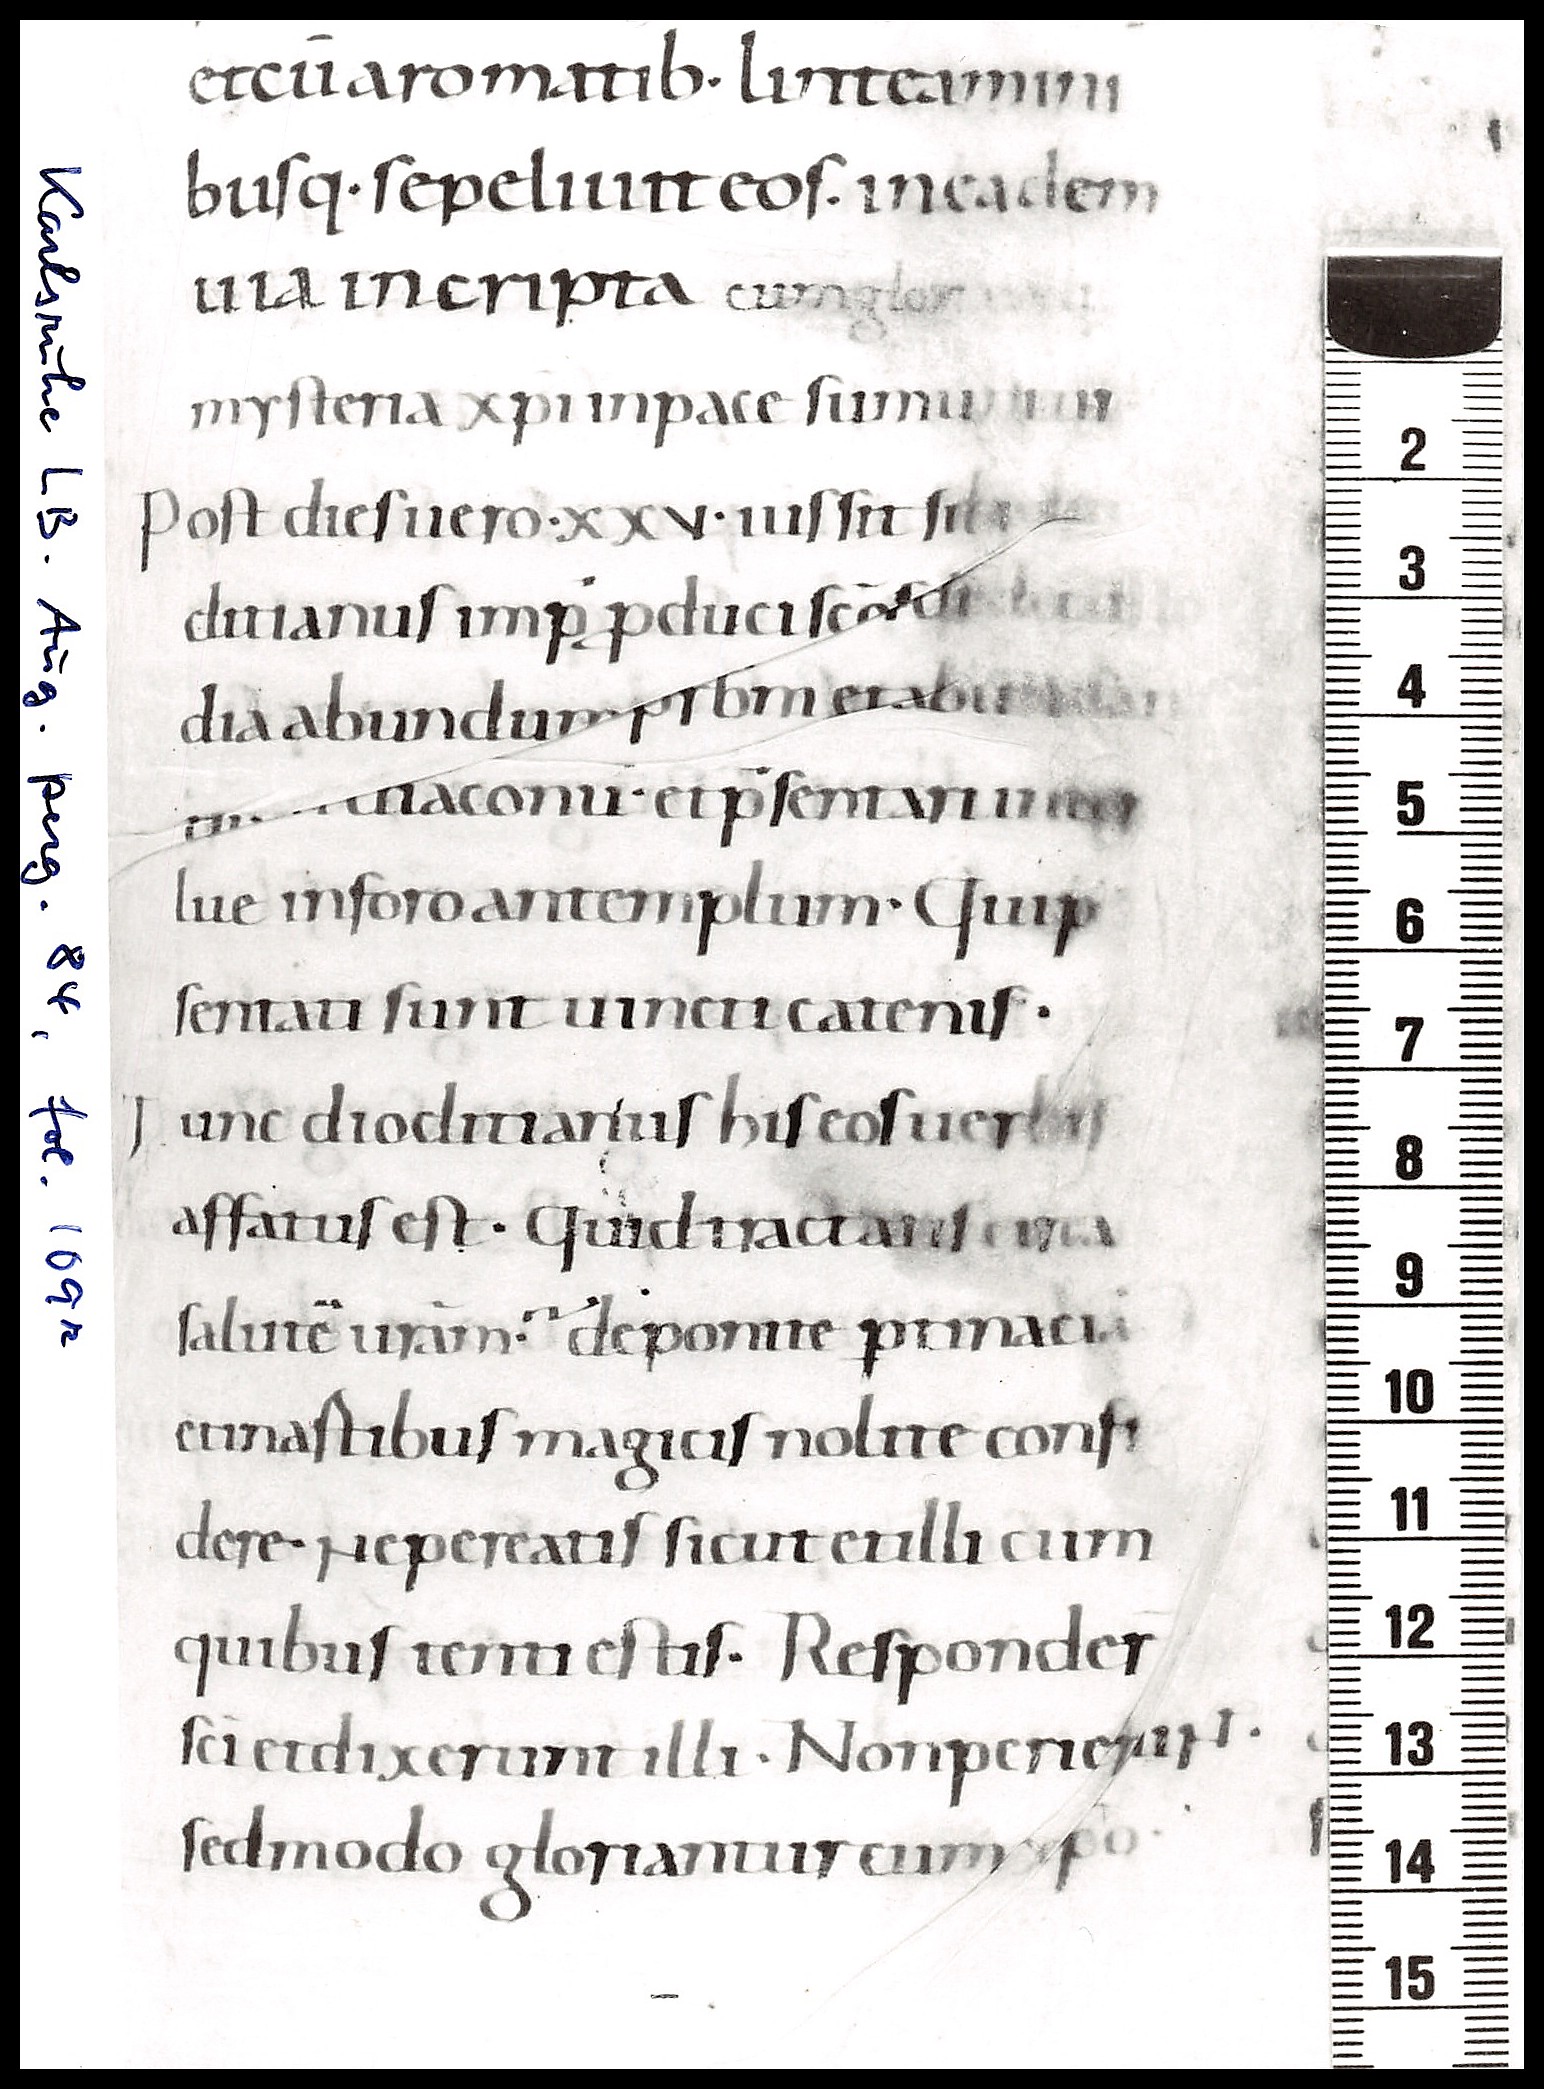 et cū aromatib· linteamini
busq· sepeliuit eos. in eadem
uia in cripta cum glor
mysteria xpi in pace
Post dies uero · xxv · iussit
ditianus imp pduci scōs
dia abundum prbm et abun
diaconū· et p̄sentari in
lue in foro ante templum· Qui p
sentati sunt uincti catenis·
Tunc dioclitianus his eos uerbis
affatus est· Quid tractatis circa
salutē urām· deponite ptinaciā
et in astibus magicis nolite confi
dere· Ne pereatis sicut et illi cum
quibus tenti estis. Responder
sci et dixerunt illi· Non perierunt·
sed modo gloriantur cum xpo·
Karlsruhe LB. Aug. perg. 84, fol. 109r
2
3
4
5
6
7
8
9
10
11
12
13
14
15